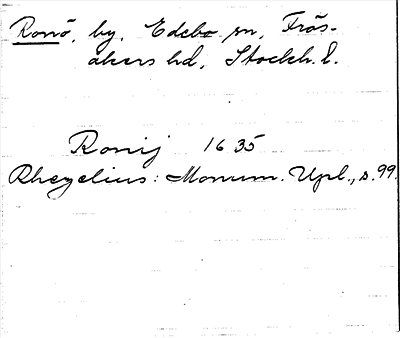 Ronö, by, Edebo sn, Frös-
åkers hd, Stockh. l.
Ronij 1635
Rhezelius: Monum. Upl., s. 99.